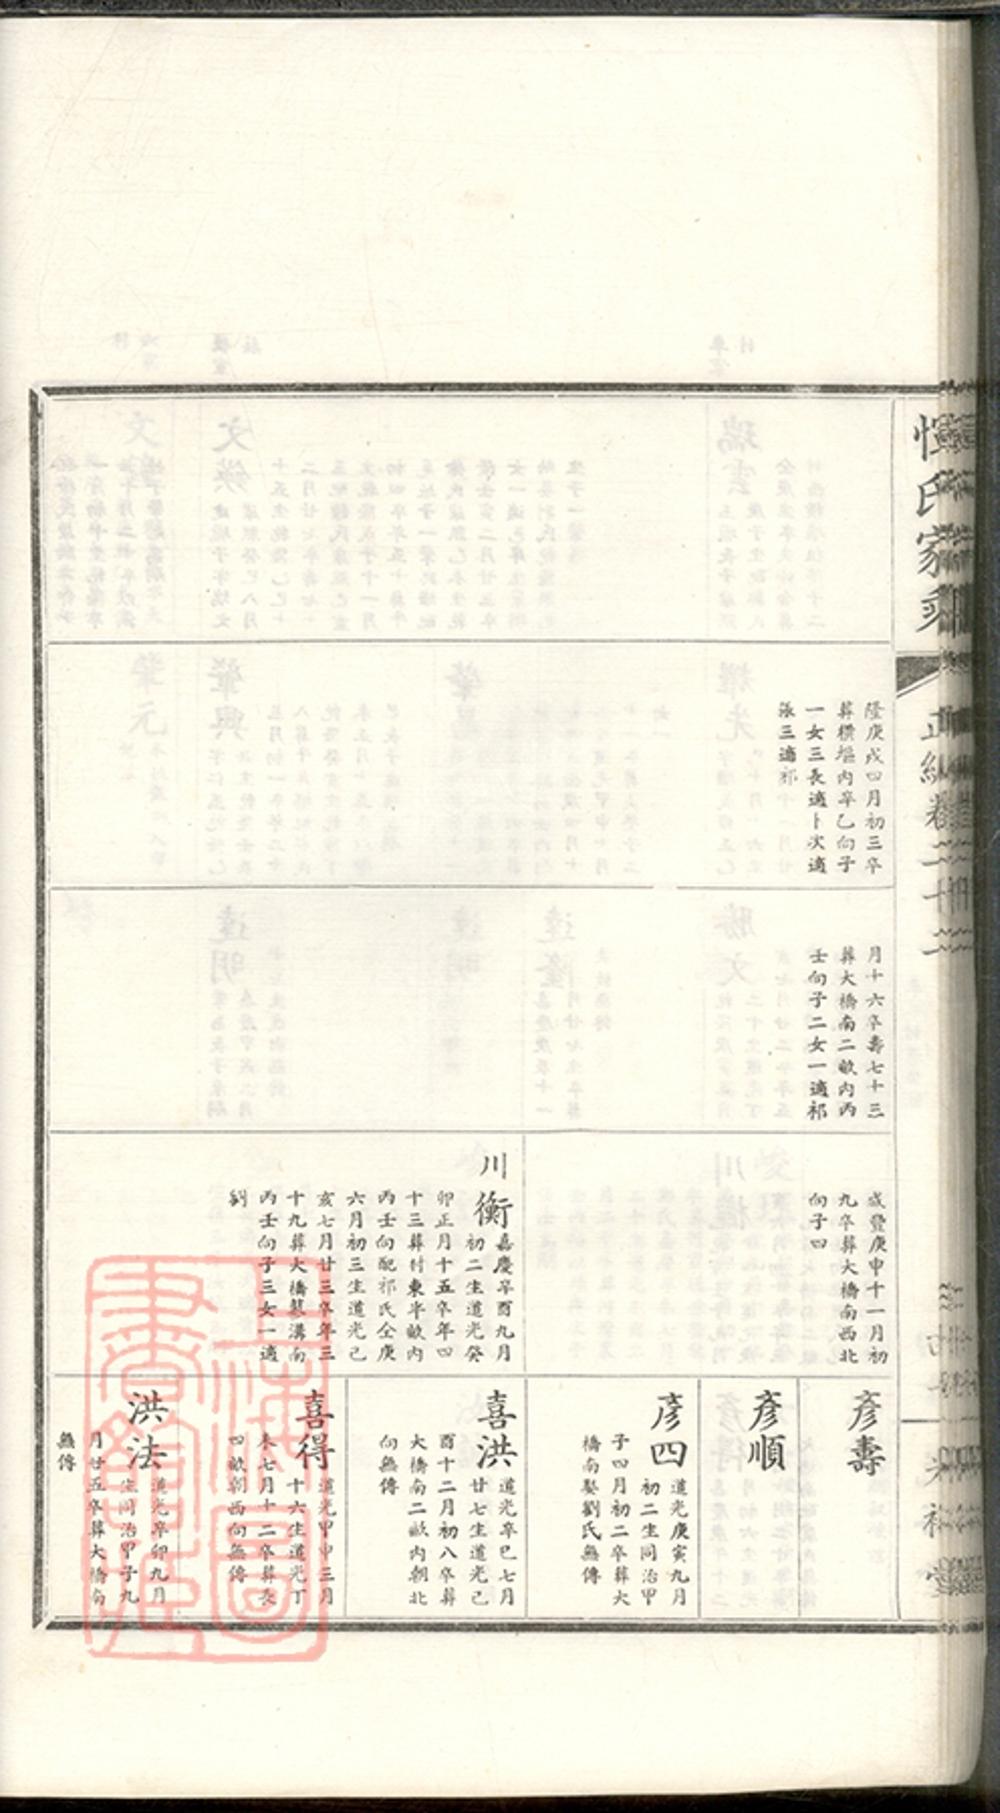 惲氏家乘
隆庚戌四月初三卒
葬橫塸內辛乙向子
一女三長適卜次適
張三適祁
月十六卒壽七十三
葬大橋南二畝內丙
壬向子二女一適祁
咸豐庚申十一月初
九卒葬大橋南西北
向子四
川衡
嘉慶辛酉九月
初二生道光癸
卯正月十五卒年四
十三葬村東半畝內
丙壬向配祁氏仝庚
六月初三生道光己
亥七月廿三卒年三
十九葬大橋蔡溝南
丙壬向子三女一適
劉
彥壽
彥順
彥四
道光庚寅九月
初二生同治甲
子四月初二卒葬大
橋南娶劉氏無傳
喜洪
道光辛巳七月
廿七生道光己
酉十二月初八卒葬
大橋南二畝內朝北
向無傳
喜得
道光甲申三月
十六生道光丁
未七月十二卒葬長
四畝朝西向無傳
洪法
道光辛卯九月
生同治甲子九
月廿五卒葬大橋南
無傳
上海圖書館藏